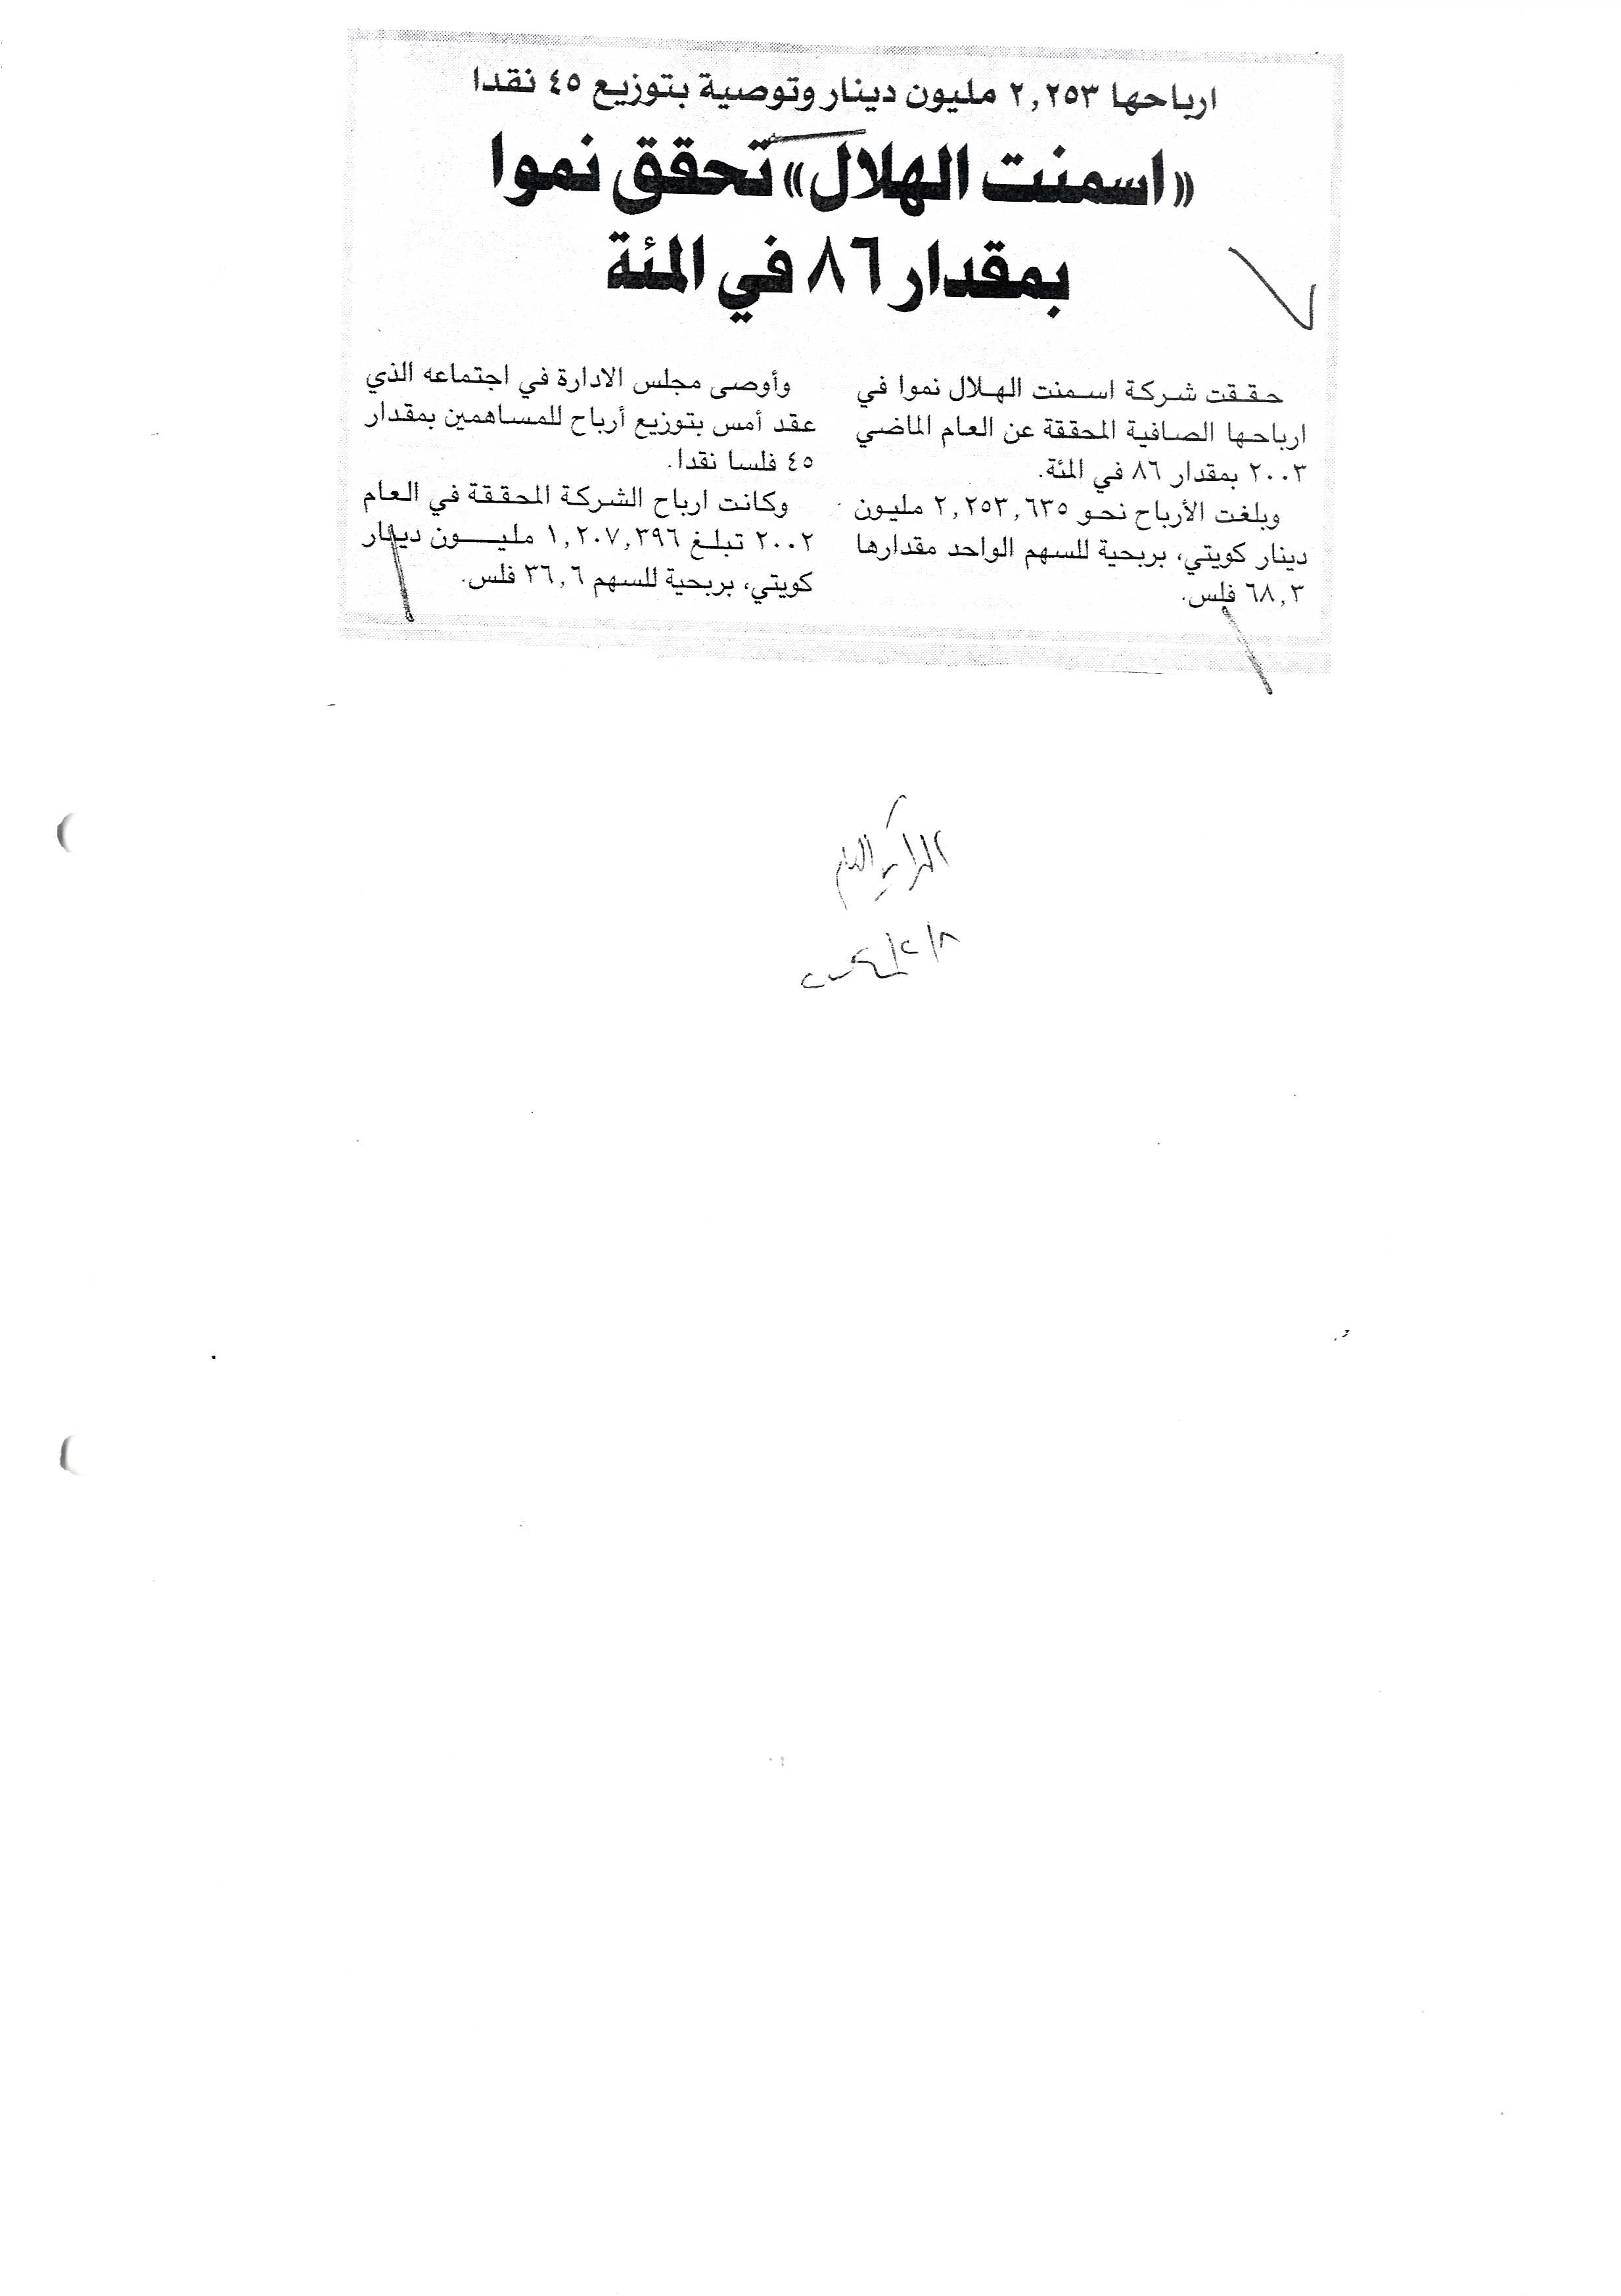 ارباحها ٢,٢٥٣ مليون دينار وتوصية بتوزيع ٤٥ نقدا
«اسمنت الهلال» تحقق نموا
بمقدار ٨٦ في المئة
حققت شركة اسمنت الهلال نموا في
ارباحها الصافية المحققة عن العام الماضي
٢٠٠٣ بمقدار ٨٦ في المئة.
وبلغت الأرباح نحو ٢,٢٥٣,٦٣٥ مليون
دينار كويتي، بربحية للسهم الواحد مقدارها
٦٨,٣ فلس.
وأوصى مجلس الادارة في اجتماعه الذي
عقد أمس بتوزيع أرباح للمساهمين بمقدار
٤٥ فلسا نقدا.
وكانت ارباح الشركة المحققة في العام
٢٠٠٢ تبلغ ١,٢٠٧,٣٩٦ مليون دينار
كويتي، بربحية للسهم ٣٦,٦ فلس.
الرأي العام
٨/٢/٢٠٠٤